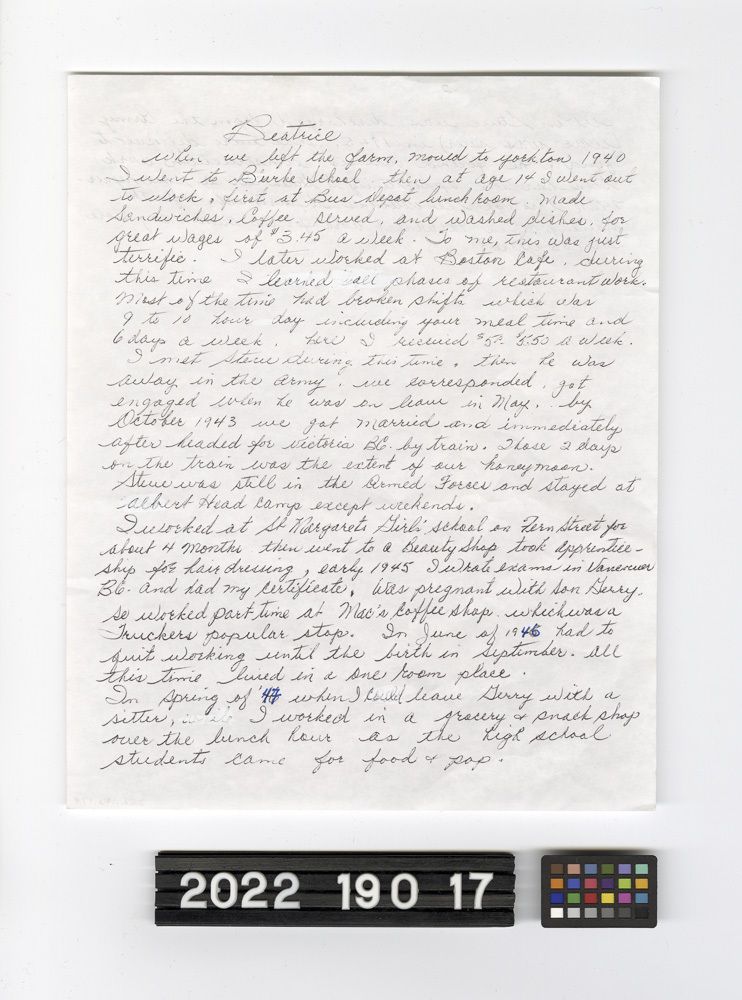 Beatrice
When we left the farm, moved to Yorkton 1940
I went to Burke School then at age 14 I went out
to work, first at Bus Depot lunch room. Made
Sandwiches, Coffee served, and washed dishes, for
great wages of $3.45 a week. To me, this was just
terrific. I later worked at Boston Cafe, during
this time I learned all phases of restaurant work.
Most of the time had broken shifts which was
9 to 10 hour day including your meal time and
6 days a week, here I received $5.- $5.50 a week.
I met Steve during this time, then he was
away in the army, we corresponded, got
engaged when he was on leave in May, by
October 1943 we got married and immediately
after headed for Victoria BC. by train. Those 2 days
on the train was the extent of our honeymoon.
Steve was still in the Armed Forces and stayed at
Albert Head Camp except weekends.
I worked at St Margarets Girls' School on Fern Street for
about 4 months then went to a Beauty Shop took apprentice-
ship for hairdressing, early 1945 I wrote exams in Vancouver
BC. and had my certificate, Was pregnant with son Gerry,
so worked part time at Mac's Coffee Shop which was a
Truckers popular stop. In June of 1946 had to
quit working until the birth in September. All
this time lived in a one room place.
In Spring of '47 when I could leave Gerry with a
sitter, I worked in a grocery & snack shop
over the lunch hour as the high school
students came for food & pop.
2022 190 17